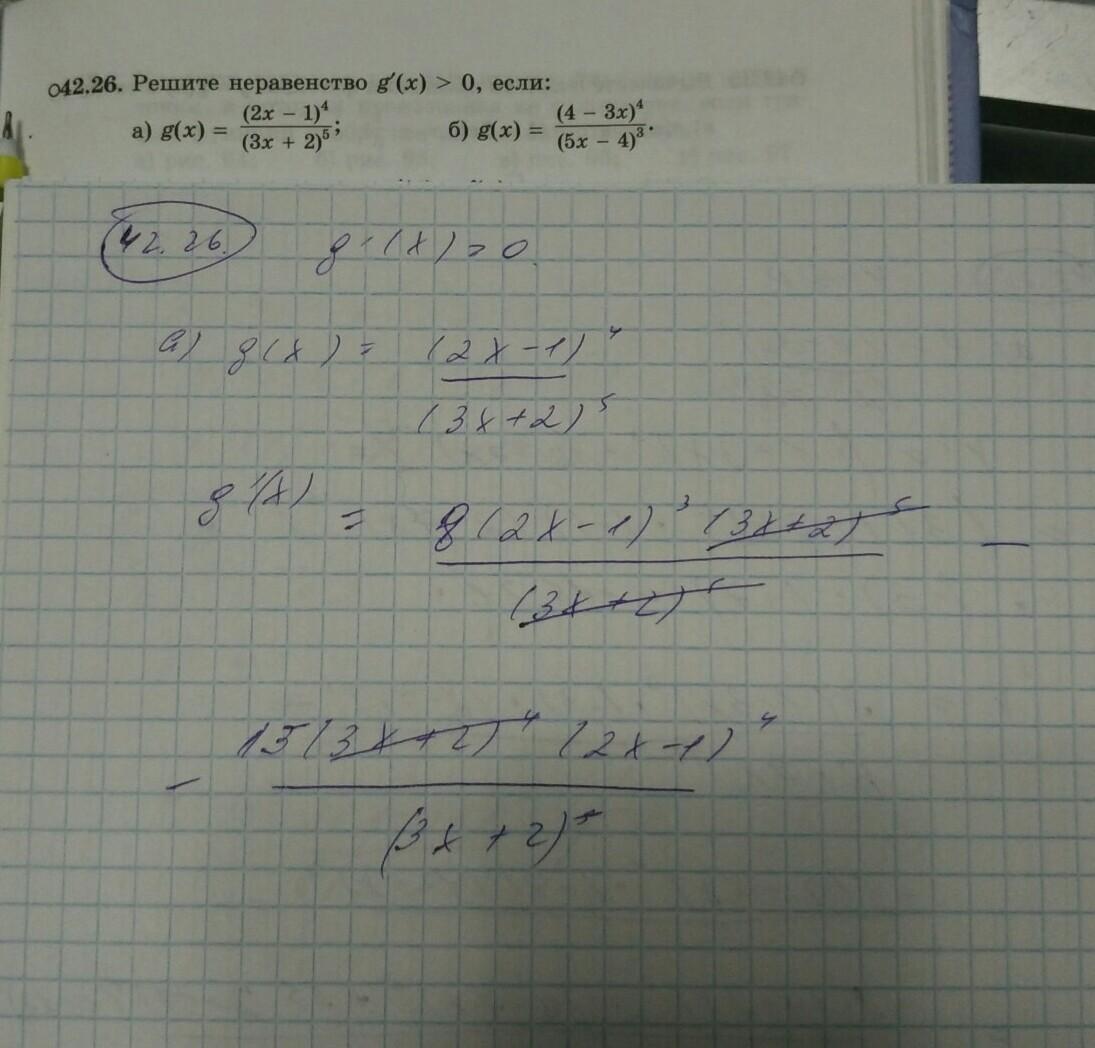 42.26. Решите неравенство g′(x) > 0, если:
а) g(x) = (2x − 1)⁴ / (3x + 2)⁵; б) g(x) = (4 − 3x)⁴ / (5x − 4)³.
42.26. g'(x) > 0.
а) g(x) = (2x-1)⁴
(3x+2)⁵
g'(x) = 8(2x-1)³ (3x+2)⁵ −
(3x+2)
− 15(3x+2)⁴ (2x-1)⁴
(3x+2)